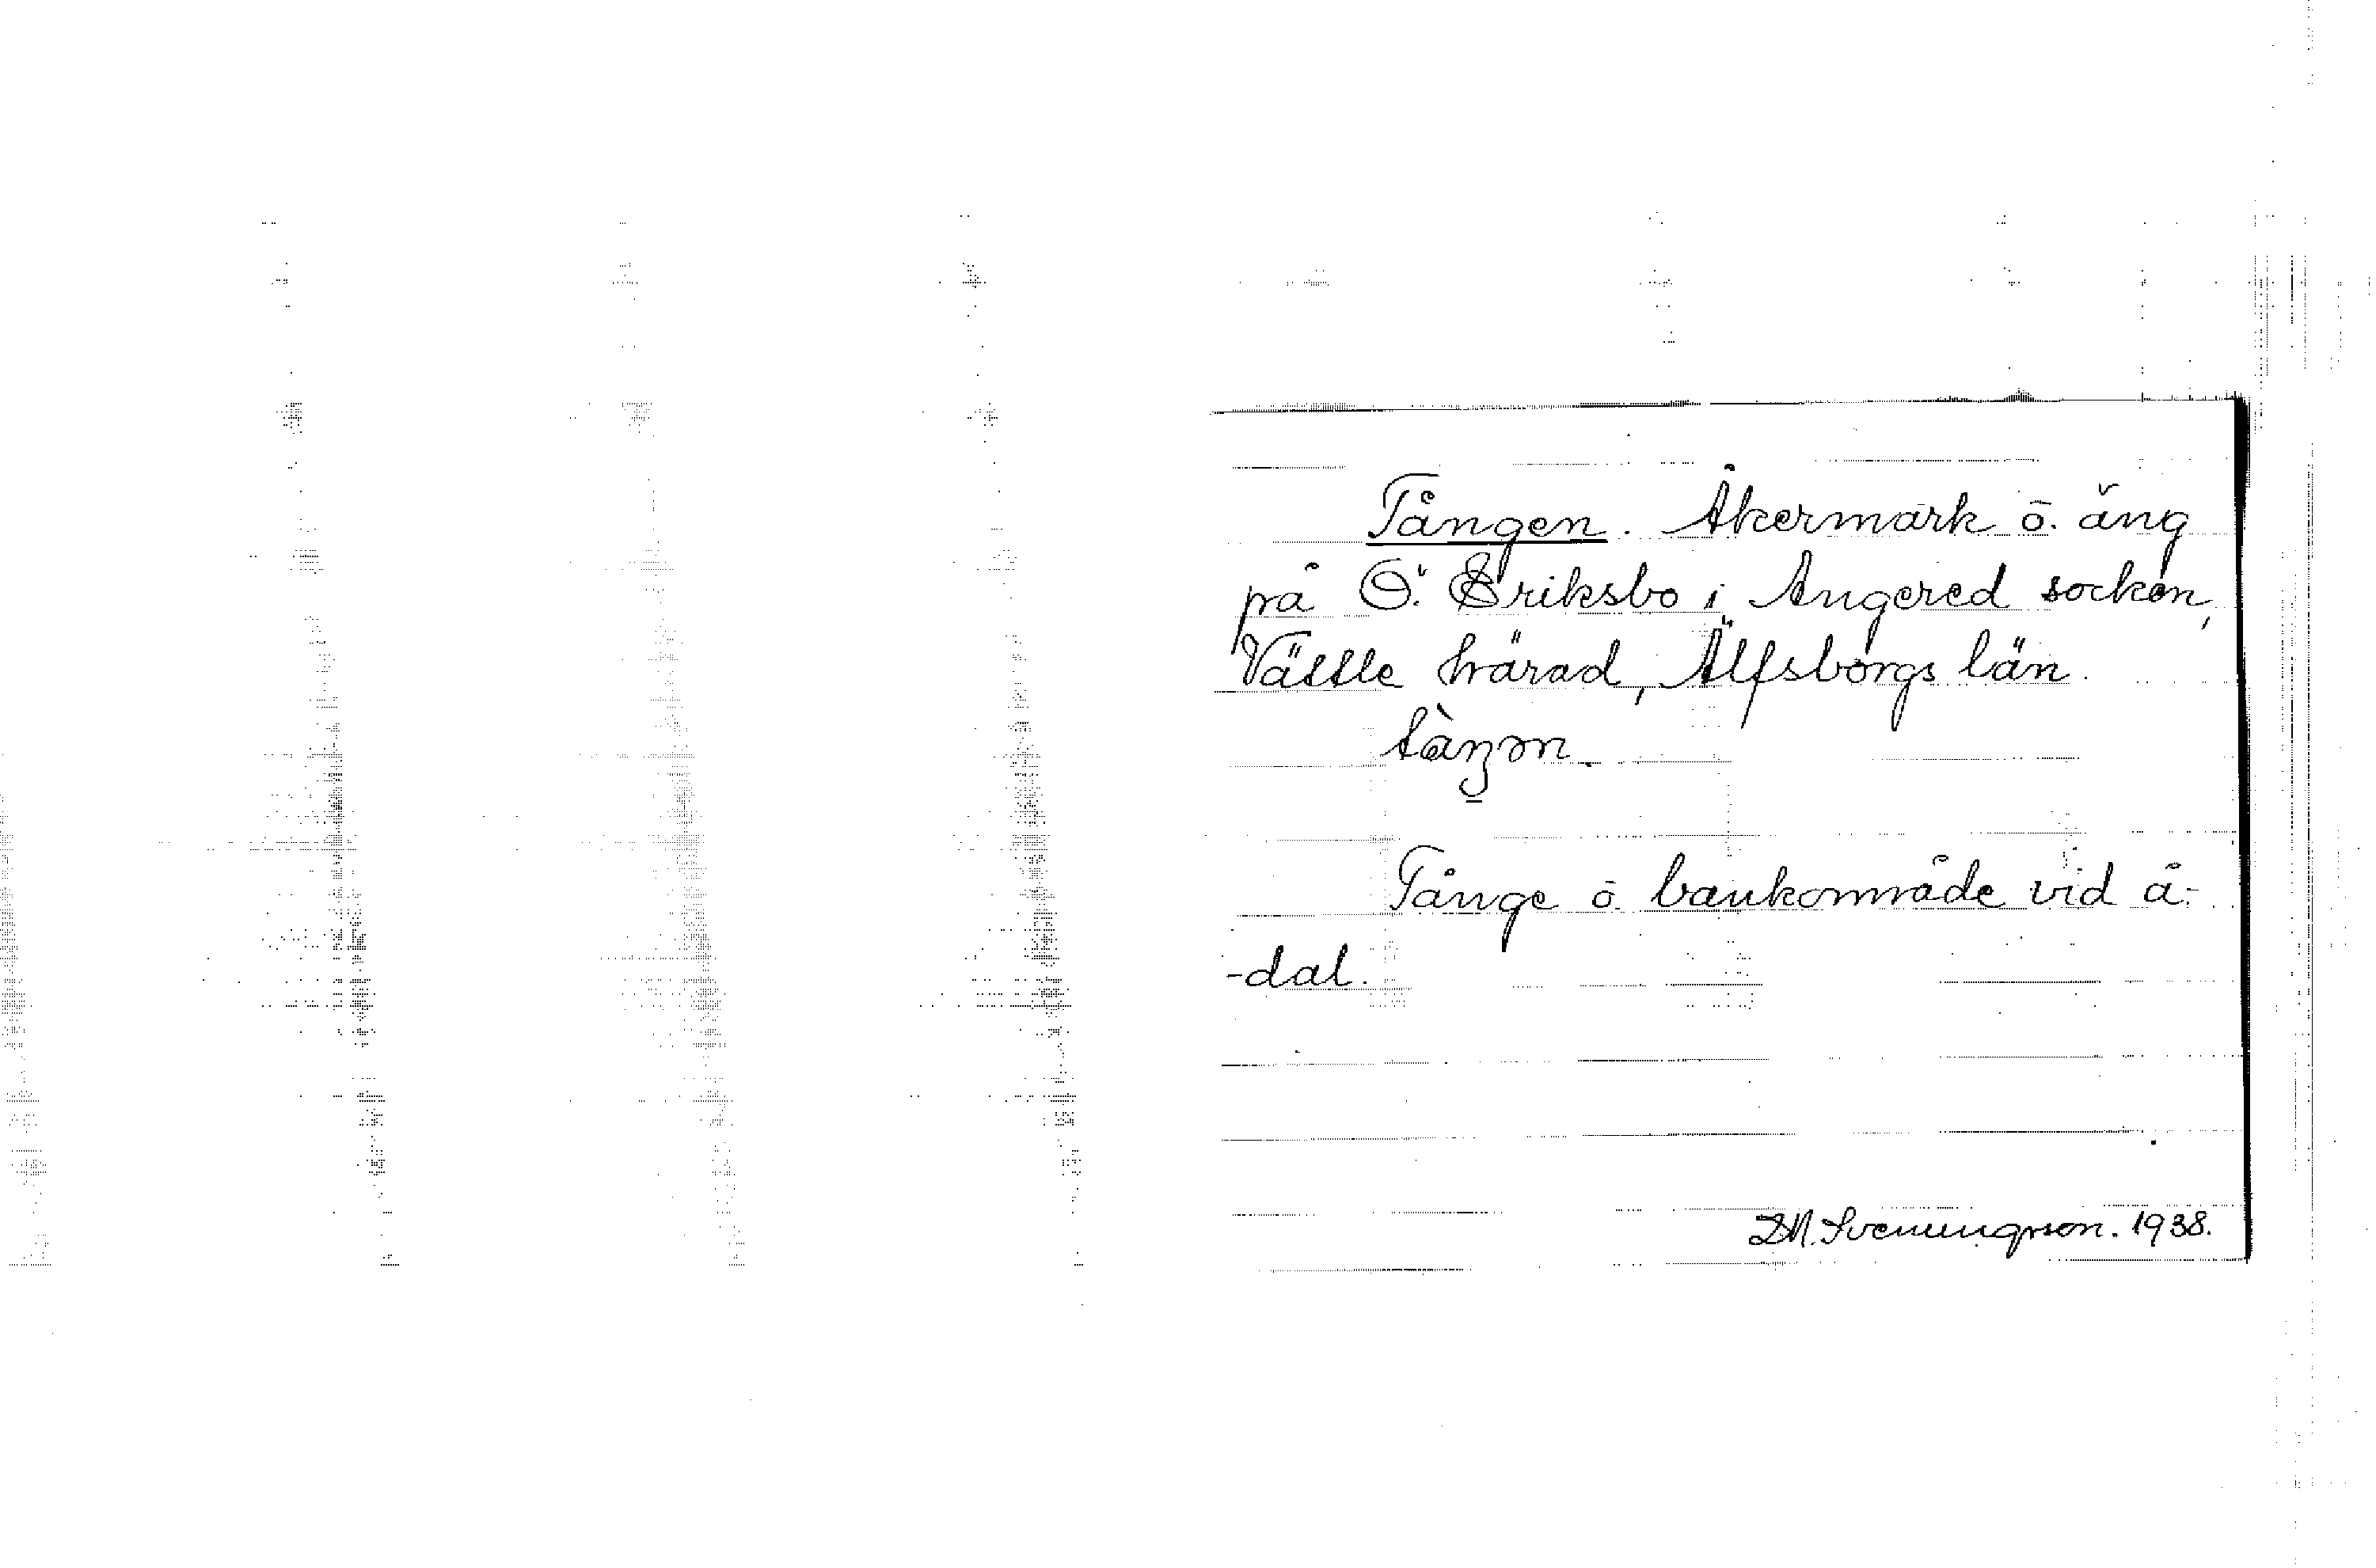 Tången. Åkermark ō. äng
på Ö. Eriksbo i Angered socken,
Vättle härad, Älfsborgs län.
Tånge ō bankområde vid å-
-dal.
D.N. Svenungsson. 1938.